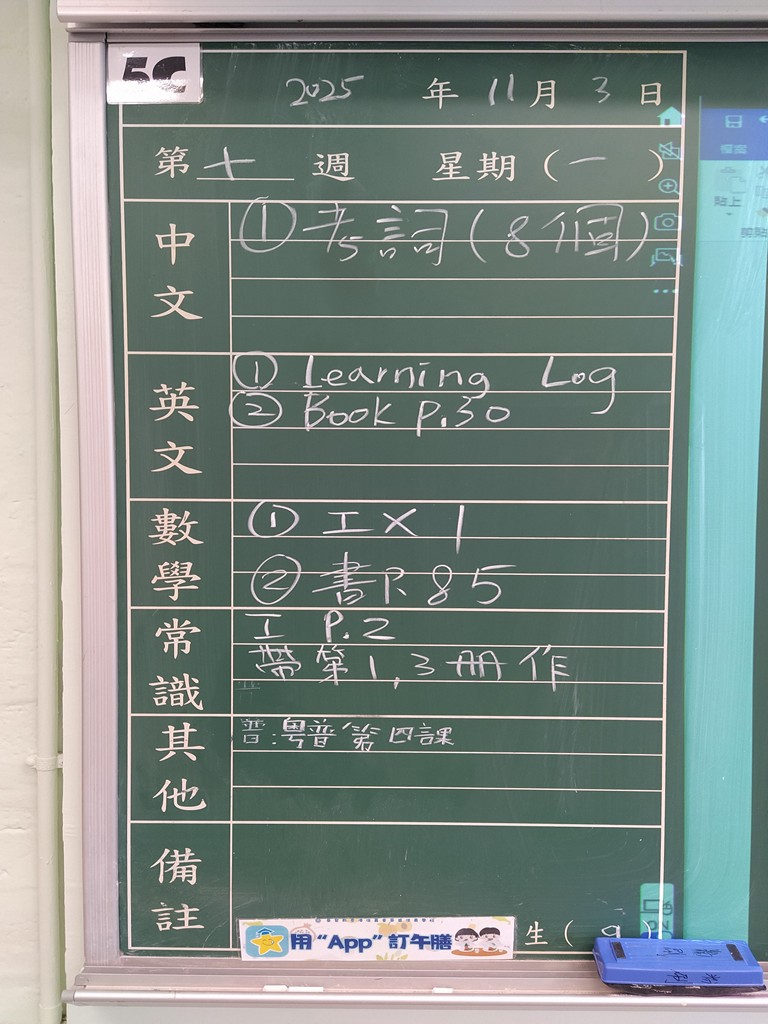 5C
2025 年 11 月 3 日
第 十 週 星期（一）
中文
① 考5詞(8個)
英文
① Learning Log
② Book p.30
數學
① 工×1
② 書P.85
常識
工 P.2
帶第1,3冊作
其他
普:粵普第四課
備註
用“App”訂午膳
生（9
檔案
貼上
剪貼